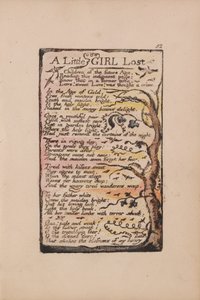 A Little GIRL Lost
Children of the future Age,
Reading this indignant page:
Know that in a former time,
Love! sweet Love! was thought a crime.
In the Age of Gold,
Free from winters cold:
Youth and maiden bright,
To the holy light,
Naked in the sunny beams delight.
Once a youthful pair
Fill'd with softest care:
Met in garden bright,
Where the holy light,
Had just removd the curtains of the night.
There in rising day,
On the grass they play:
Parents were afar:
Strangers came not near:
And the maiden soon forgot her fear.
Tired with kisses sweet
They agree to meet,
When the silent sleep
Waves o'er heavens deep:
And the weary tired wanderers weep.
To her father white
Came the maiden bright:
But his loving look,
Like the holy book,
All her tender limbs with terror shook.
Ona! pale and weak!
To thy father speak:
O the trembling fear!
O the dismal care!
That shakes the blossoms of my hoary hair